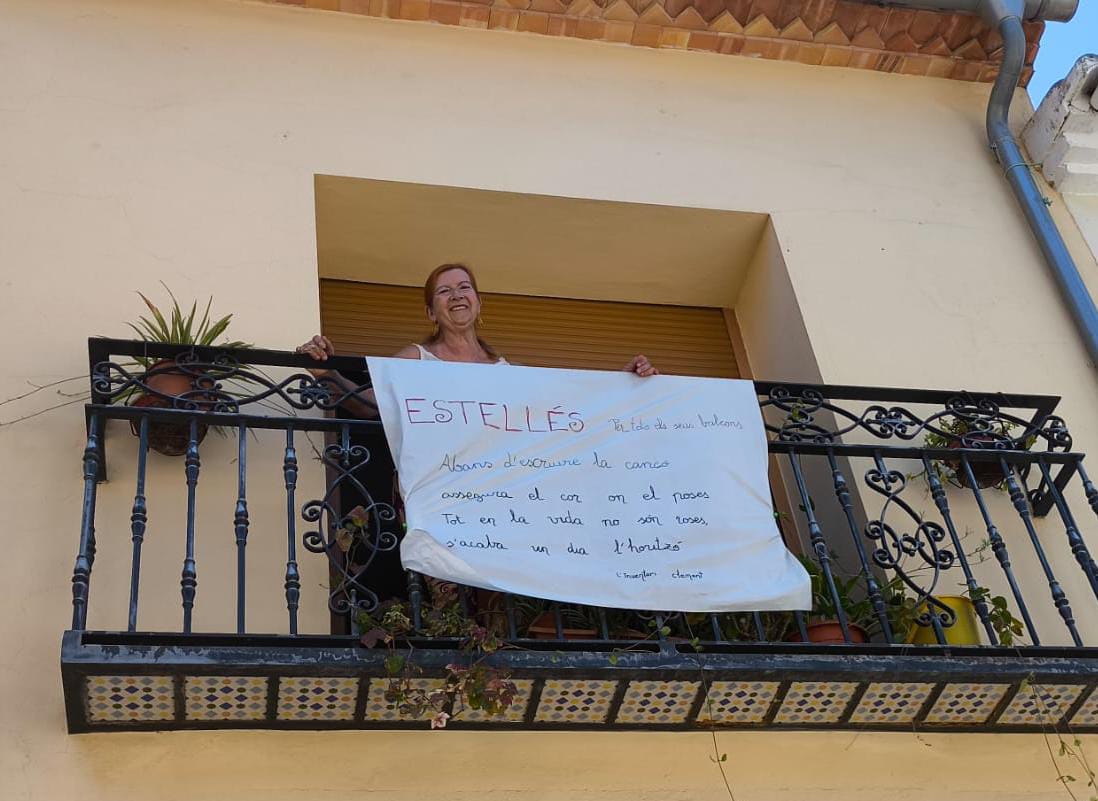 ESTELLÉS Per tots els seus balcons
Abans d'escriure la cançó
assegura el cor on el poses
Tot en la vida no són roses,
s'acaba un dia l'horitzó
L'inventari clement